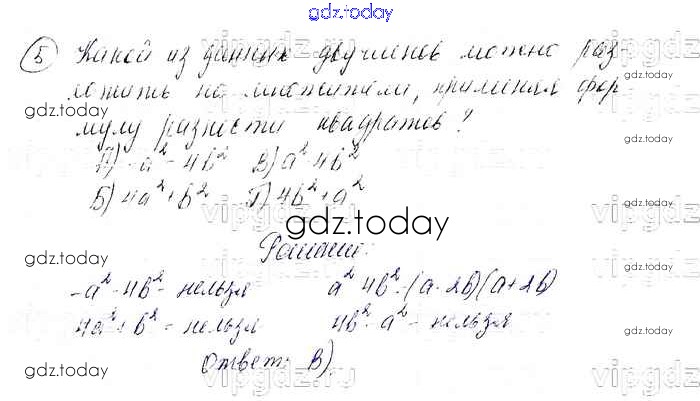 gdz.today
5 Какой из данных двучленов можно раз-
ложить на множители, применяя фор
мулу разности квадратов?
А) -a² - 4b² В) a² - 4b²
Б) 4a² + b² Г) 4b² + a²
gdz.today
Решение:
-a² - 4b² - нельзя a² - 4b² = (a - 2b)(a + 2b)
4a² + b² - нельзя 4b² - a² - нельзя
Ответ: В).
gdz.today
gdz.today
gdz.today
gdz.today
gdz.today
gdz.today
vipgdz.ru
vipgdz.ru
vipgdz.ru